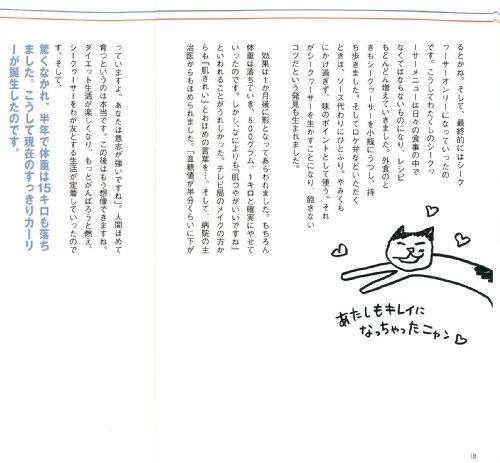 るとかね。そして、最終的にはシーク
ワーサーオンリーになっていったの
です。こうしてわたくしのシークヮ
ーサーメニューは日々の食事の中で
なくてはならないものになり、レシピ
もどんどん増えていきました。外食のと
きもシークヮーサーを小瓶にうつし、持
ち歩きました。そしてロケ弁などいただく
ときは、ソース代わりにひとふり。やみくも
にかけ過ぎず、味のポイントとして使う。それ
がシークヮーサーを生かすことになり、飽きない
コツだという発見も生まれました。
効果は1か月後に形となってあらわれました。もちろん
体重は落ちていき、500グラム、1キロと確実にやせて
いったのです。しかし、なによりも「肌つやがいいですね」
といわれることがうれしかった。テレビ局のメイクの方か
らも「肌きれい」とおほめの言葉を…。そして、病院の主
治医からもほめられました。「血糖値が半分くらいに下が
っていますよ。あなたは意志が強いですね」。人間ほめて
育つというのは本当です。この後はもう想像できますね。
ダイエット生活が楽しくなり、もっとがんばろうと燃え、
シークヮーサーをわが友とする生活が定着していったので
す。そして、
驚くなかれ、半年で体重は15キロも落ち
ました。こうして現在のすっきりカーリ
ーが誕生したのです。
あたしもキレイに
なっちゃったニャン
18